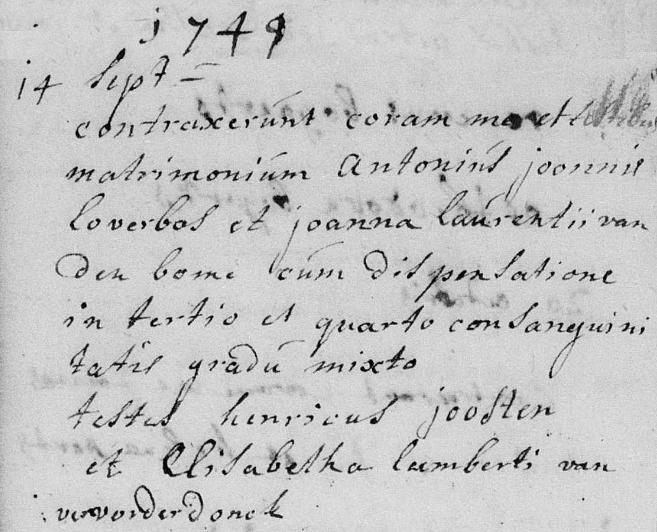 1749
14 Sept
contraxerunt coram me et testibus
matrimonium Antonius joannis
loverbos et joanna laurentii van
den bome cum dispensatione
in tertio et quarto consanguini
tatis gradu mixto
testes henricus joosten
et Elisabetha lamberti van
vervorderdonck